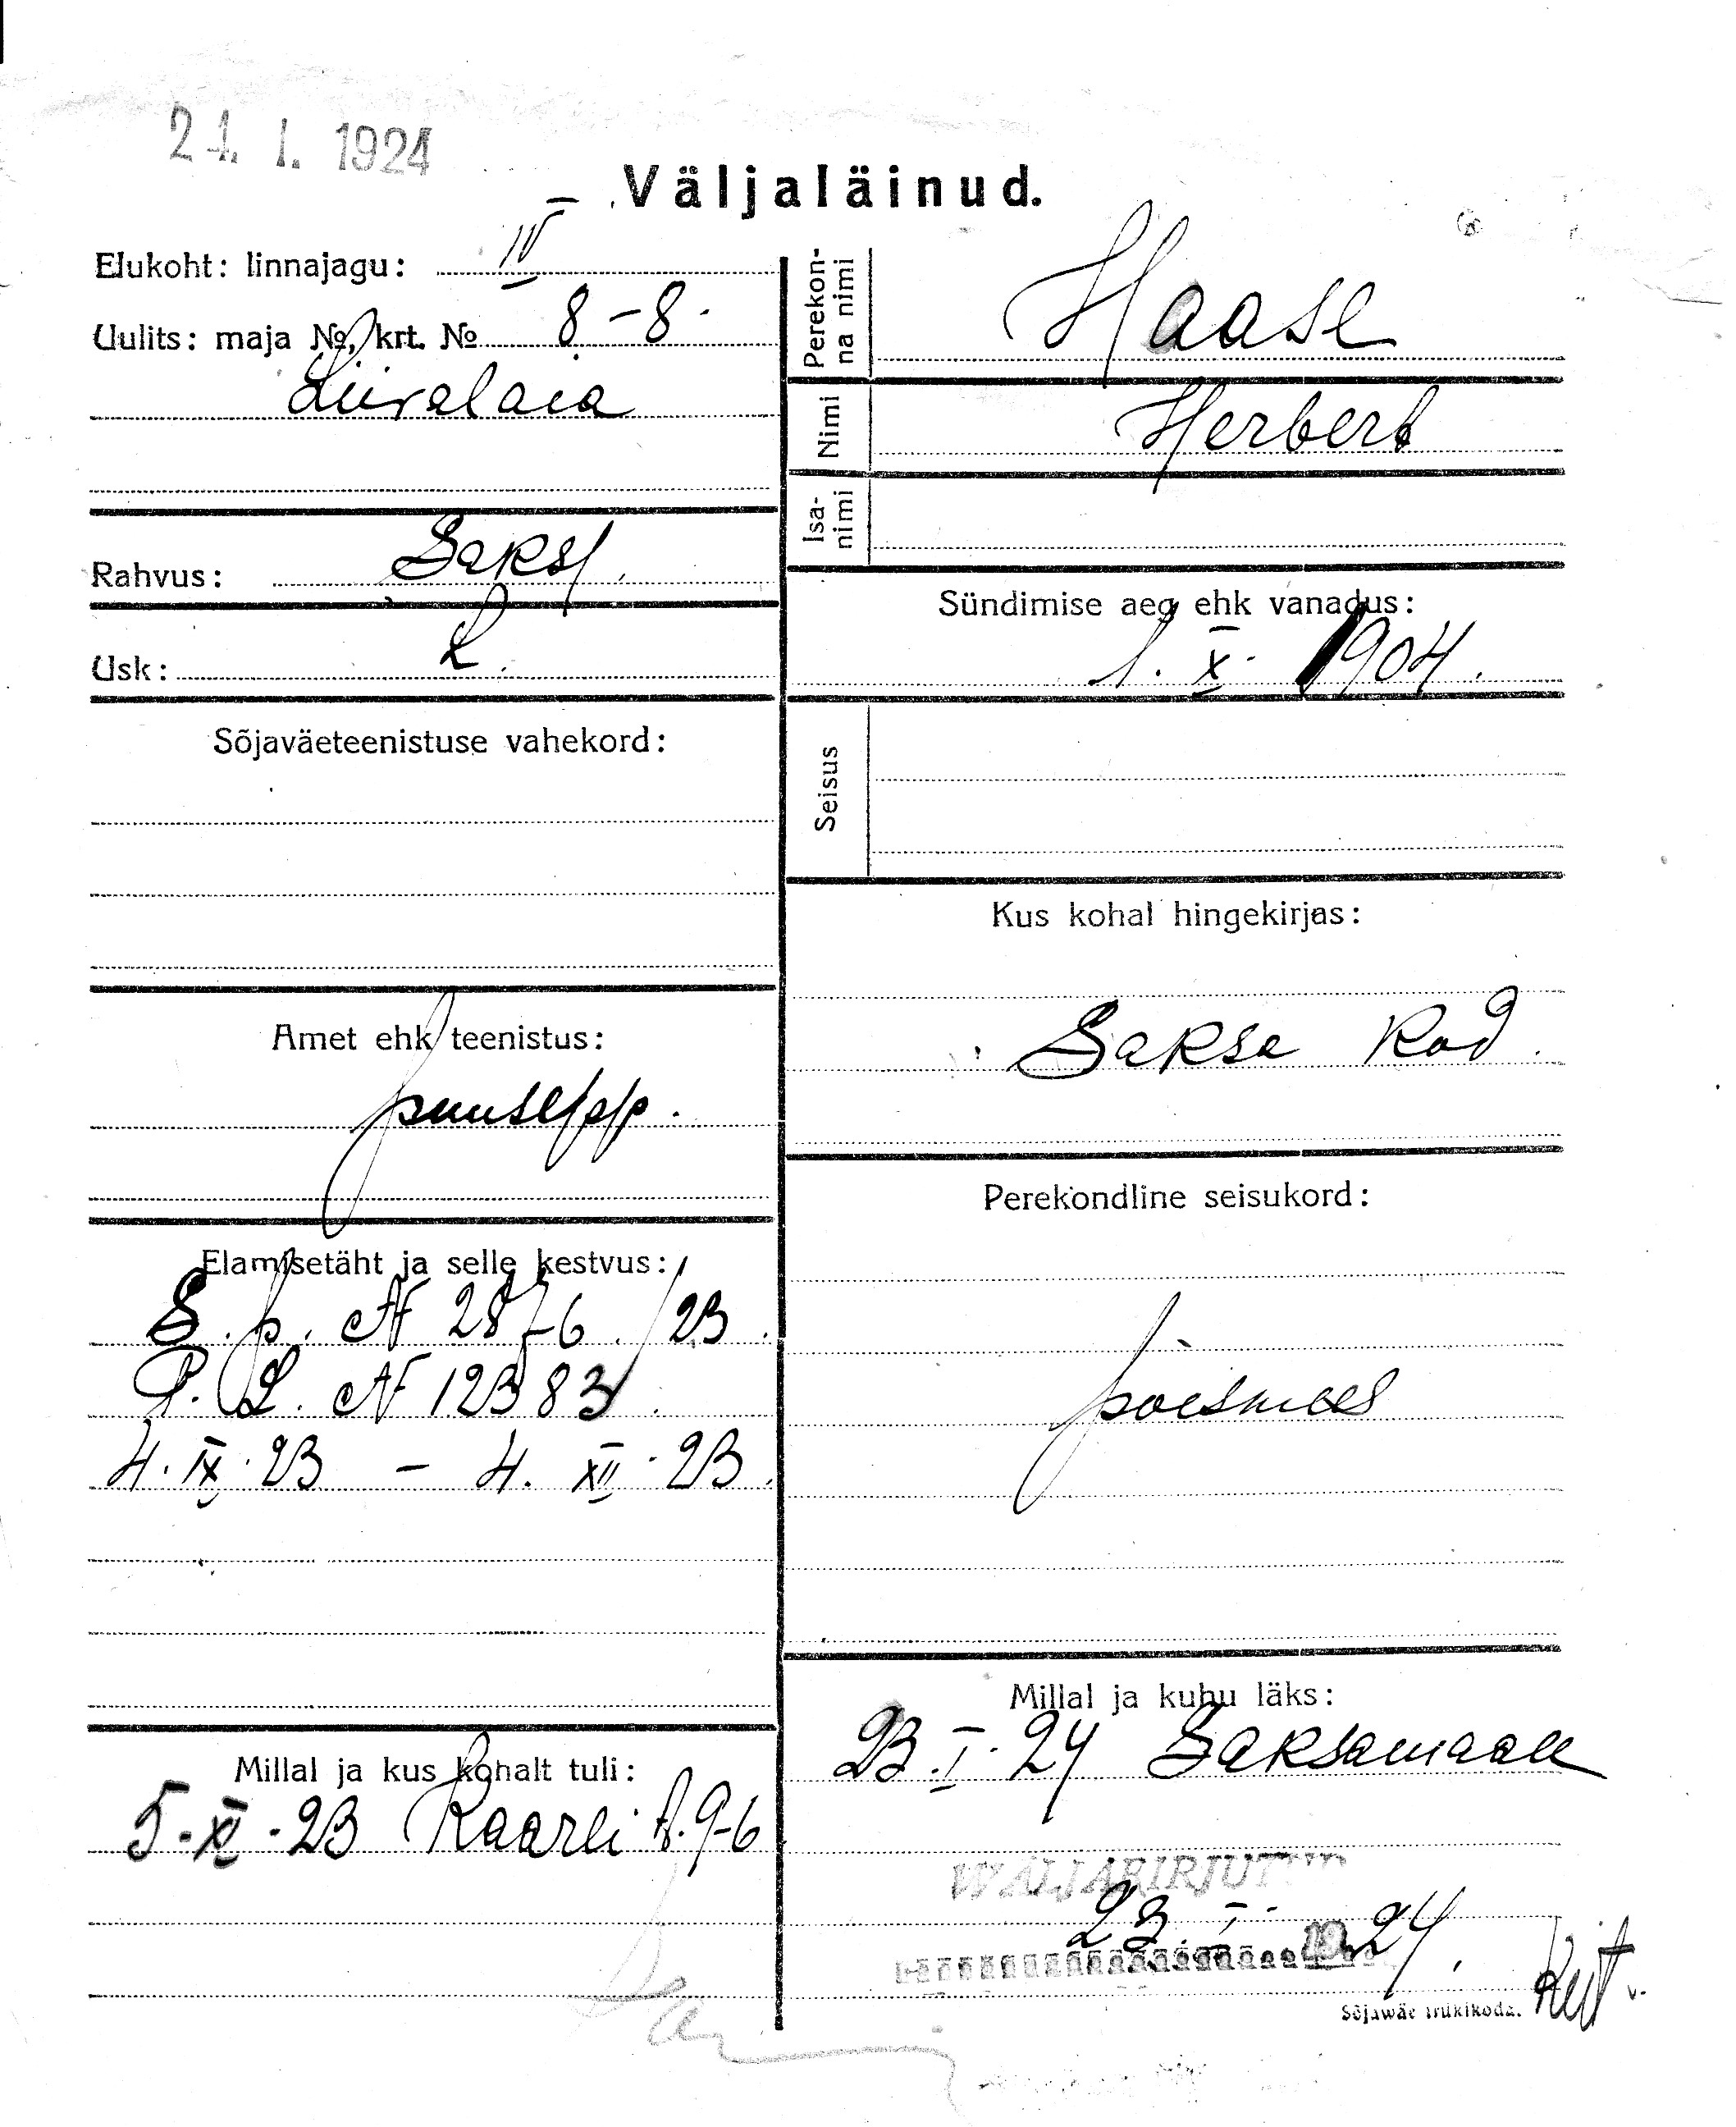 24. I. 1924
Väljaläinud.
Elukoht: linnajagu: IV
Uulits: maja №, krt. № 8-8.
Liivalaia
Rahvus: Saksl.
Usk: L.
Sõjaväeteenistuse vahekord:
Amet ehk teenistus:
puusepp.
Elamisetäht ja selle kestvus:
S.p. № 2876/23.
P.L. № 12383.
4.IX.23 – 4.XII.23.
Millal ja kus kohalt tuli:
5.XI.23 Kaarli t.9-6
Perekon-
na nimi
Haase
Nimi
Herbert
Isa-
nimi
Sündimise aeg ehk vanadus:
1. X. 1904.
Seisus
Kus kohal hingekirjas:
Saksa kod.
Perekondline seisukord:
poismees
Millal ja kuhu läks:
23.I.24 Saksamaale
WÄLJAKIRJUTUD
23. I. 1924.
Sõjawäe trükikoda.